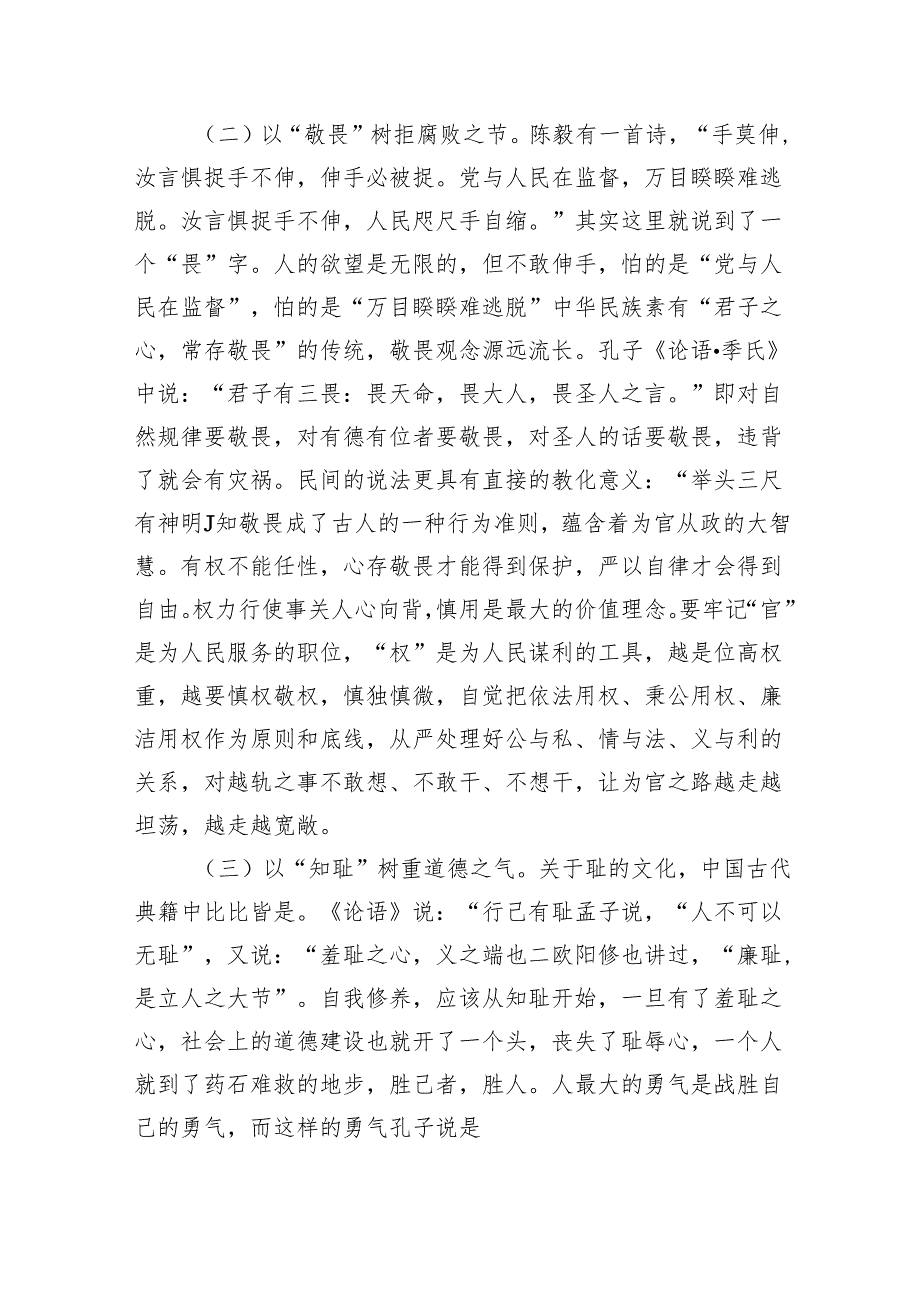 （二）以“敬畏”树拒腐败之节。陈毅有一首诗，“手莫伸，
汝言惧捉手不伸，伸手必被捉。党与人民在监督，万目睽睽难逃
脱。汝言惧捉手不伸，人民咫尺手自缩。”其实这里就说到了一
个“畏”字。人的欲望是无限的，但不敢伸手，怕的是“党与人
民在监督”，怕的是“万目睽睽难逃脱”中华民族素有“君子之
心，常存敬畏”的传统，敬畏观念源远流长。孔子《论语•季氏》
中说：“君子有三畏：畏天命，畏大人，畏圣人之言。”即对自
然规律要敬畏，对有德有位者要敬畏，对圣人的话要敬畏，违背
了就会有灾祸。民间的说法更具有直接的教化意义：“举头三尺
有神明J知敬畏成了古人的一种行为准则，蕴含着为官从政的大智
慧。有权不能任性，心存敬畏才能得到保护，严以自律才会得到
自由。权力行使事关人心向背，慎用是最大的价值理念。要牢记“官”
是为人民服务的职位，“权”是为人民谋利的工具，越是位高权
重，越要慎权敬权，慎独慎微，自觉把依法用权、秉公用权、廉
洁用权作为原则和底线，从严处理好公与私、情与法、义与利的
关系，对越轨之事不敢想、不敢干、不想干，让为官之路越走越
坦荡，越走越宽敞。
（三）以“知耻”树重道德之气。关于耻的文化，中国古代
典籍中比比皆是。《论语》说：“行己有耻孟子说，“人不可以
无耻”，又说：“羞耻之心，义之端也二欧阳修也讲过，“廉耻，
是立人之大节”。自我修养，应该从知耻开始，一旦有了羞耻之
心，社会上的道德建设也就开了一个头，丧失了耻辱心，一个人
就到了药石难救的地步，胜己者，胜人。人最大的勇气是战胜自
己的勇气，而这样的勇气孔子说是